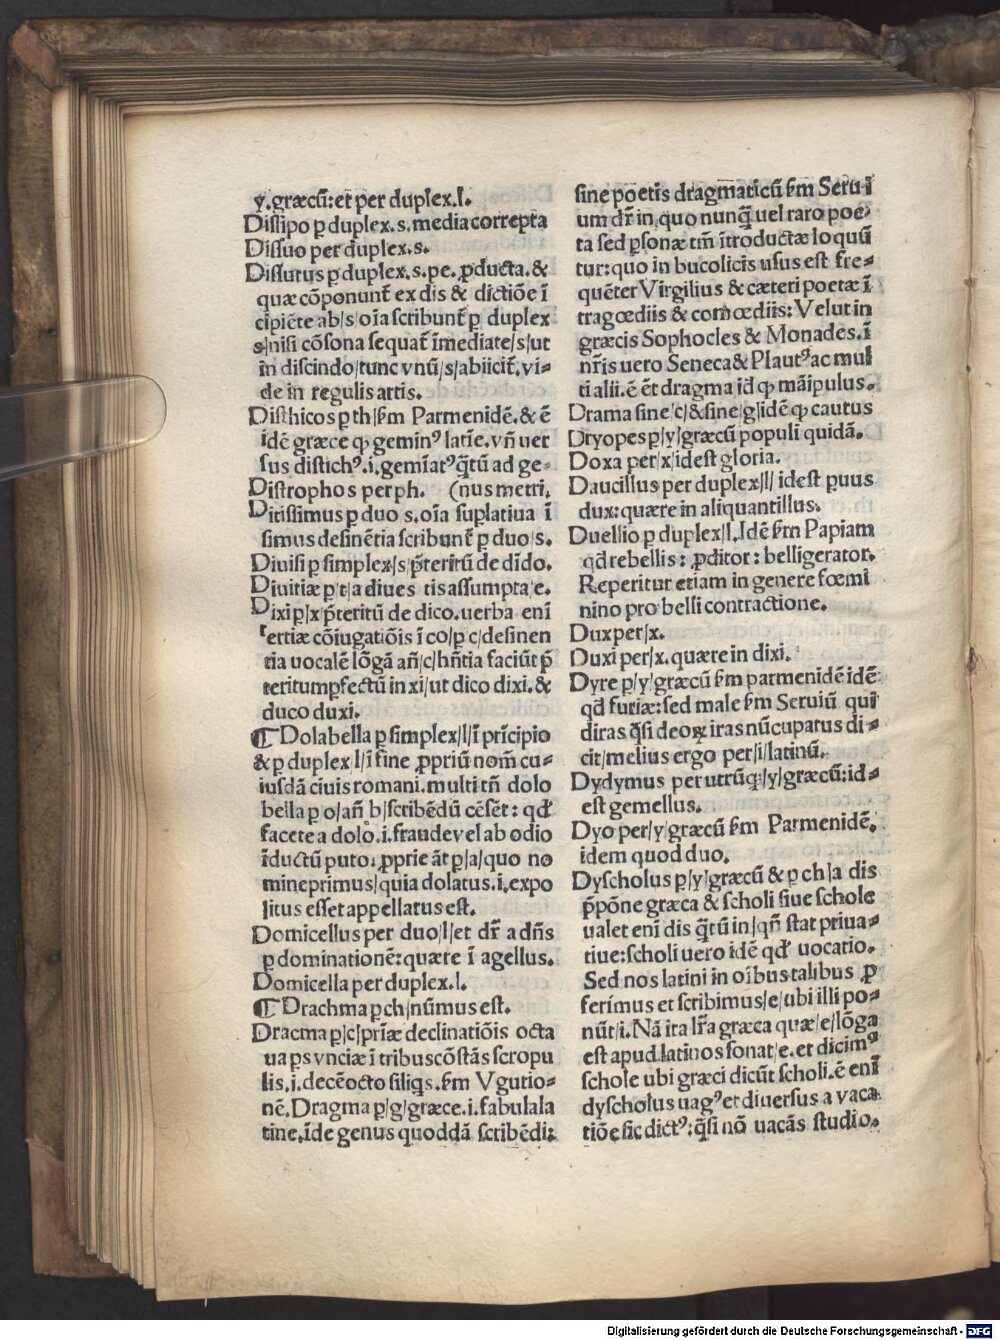 y. græcū: et per duplex. l.
Dissipo ꝑ duplex. s. media correpta
Dissuo per duplex. s.
Dissutus ꝑ duplex. s. pe. ꝓducta. &
quæ cōponunt̄ ex dis & dictiōe ī
cipiēte ab/s/oīa scribunt̄ ꝑ duplex
s/nisi cōsona sequat̄ īmediate/s/ut
in discindo/tunc vnū/s/abiicit̄. vi⸗
de in regulis artis.
Disthicos ꝑ th/ẜm Parmenidē. & ē
idē græce ꝙ geminꝰ latīe. vn̄ uer
sus distichꝰ. i. gemīatꝰ q̄tū ad ge⸗
Distrophos per ph. (nus metri.
Ditissimus ꝑ duo s. oīa suꝑlatiua ī
simus desinētia scribunt̄ ꝑ duo s.
Diuisi ꝑ simplex/s/p̄teritū de dīdo.
Diuitiæ ꝑ/t/a diues tis assumpta e.
Dixi ꝑ/x/p̄teritū de dico. uerba enī
tertiæ cōiugatiōis ī co/ꝑ c/desinen
tia uocalē lōgā an̄/c/hn̄tia faciūt p̄
teritum ꝑfectū in xi/ut dico dixi. &
duco duxi.
¶ Dolabella ꝑ simplex/l/ī prīcipio
& ꝑ duplex l/ī fine ꝓpriū nom̄ cu⸗
iusdā ciuis romani. multi tn̄ dolo
bella ꝑ o/an̄ b/scribēdū cēsēt: qd̄
facete a dolo. i. fraude vel ab odio
īductū puto. ꝓprie āt ꝑ/a/quo no
mine primus/quia dolatus. i. expo
litus esset appellatus est.
Domicellus per duo/l/et dr̄ a dn̄s
ꝑ dominationē: quære ī agellus.
Domicella per duplex. l.
¶ Drachma ꝑ ch/nūmus est.
Dracma ꝑ/c/prīæ declinatiōis octa
ua ꝑs vnciæ ī tribus cōstās scropu
lis. i. decē octo siliq̄s. ẜm Vgutio⸗
nē. Dragma ꝑ/g/græce. i. fabula la
tine. īde genus quoddā scribēdi:
sine poetis dragmaticū ẜm Serui
um dr̄ in quo nunq̄ uel raro poe⸗
ta sed ꝑsonæ tm̄ ītroductæ loquū
tur: quo in bucolicis usus est fre⸗
quēter Virgilius & cæteri poetæ ī
tragœdiis & comœdiis: Velut in
græcis Sophocles & Monades. ī
nr̄is uero Seneca & Plautꝰ ac mul
ti alii. ē ēt dragma id ꝙ māipulus.
Drama sine/c/& sine/g/idē ꝙ cautus
Dryopes ꝑ/y/græcū populi quidā.
Doxa per/x/idest gloria.
Daucillus per duplex/l/idest ꝑuus
dux: quære in aliquantillus.
Duellio ꝑ duplex/l. Idē ẜm Papiam
qd̄ rebellis: ꝓditor: belligerator.
Reperitur etiam in genere fœmi
nino pro belli contractione.
Dux per/x.
Duxi per/x. quære in dixi.
Dyre ꝑ/y/græcū ẜm parmenidē idē
qd̄ furiæ: sed male ẜm Seruiū qui
diras q̄si deoꝝ iras nūcupatus di⸗
cit/melius ergo per/i/latinū.
Dydymus per utrūq;/y/græcū: id⸗
est gemellus.
Dyo per/y/græcū ẜm Parmenidē.
idem quod duo.
Dyscholus ꝑ/y/græcū & ꝑ ch/a dis
p̄pōne græca & scholi siue schole
ualet enī dis q̄tū in/qn̄ stat priua⸗
tiue: scholi uero idē qd̄ uocatio.
Sed nos latini in oībus talibus ꝓ
ferimus et scribimus/e/ubi illi po⸗
nūt/i. Nā ita lr̄a græca quæ/e/lōga
est apud latinos sonat/e. et dicimꝰ
schole ubi græci dicūt scholi. ē enī
dyscholus uagꝰ et diuersus a vaca
tiōe sic dictꝰ: q̄si nō uacās studio.
Digitalisierung gefördert durch die Deutsche Forschungsgemeinschaft - DFG